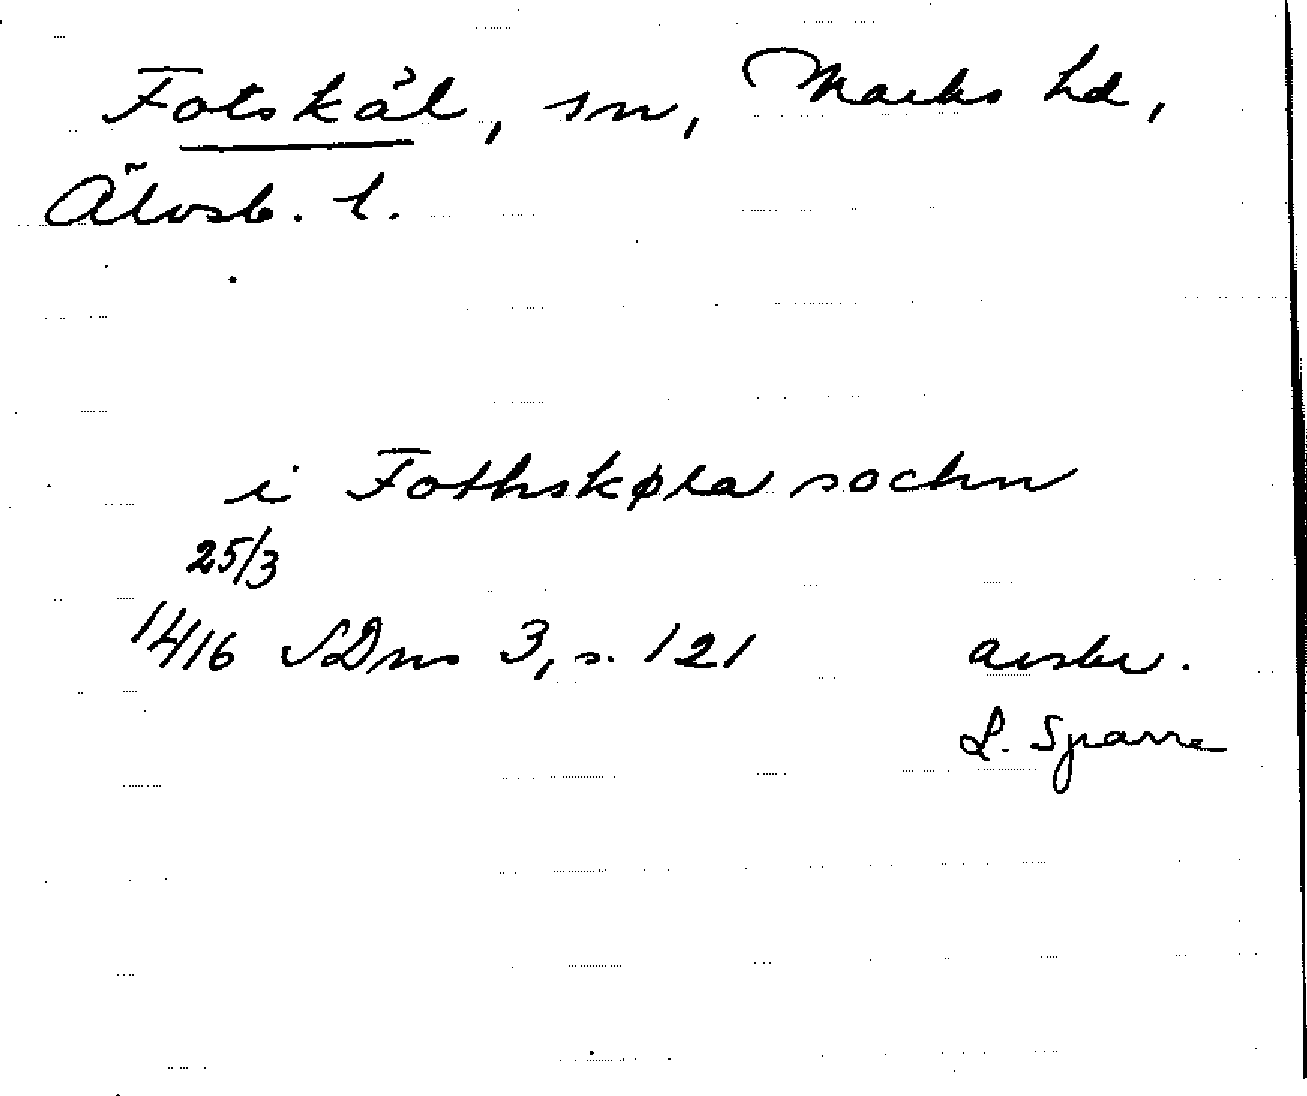 Fotskäl, sn, Marks hd,
Älvsb. l.
i Fothskøla sochn
25/3
1416 SDns 3, s. 121 avskr.
L. Sparre